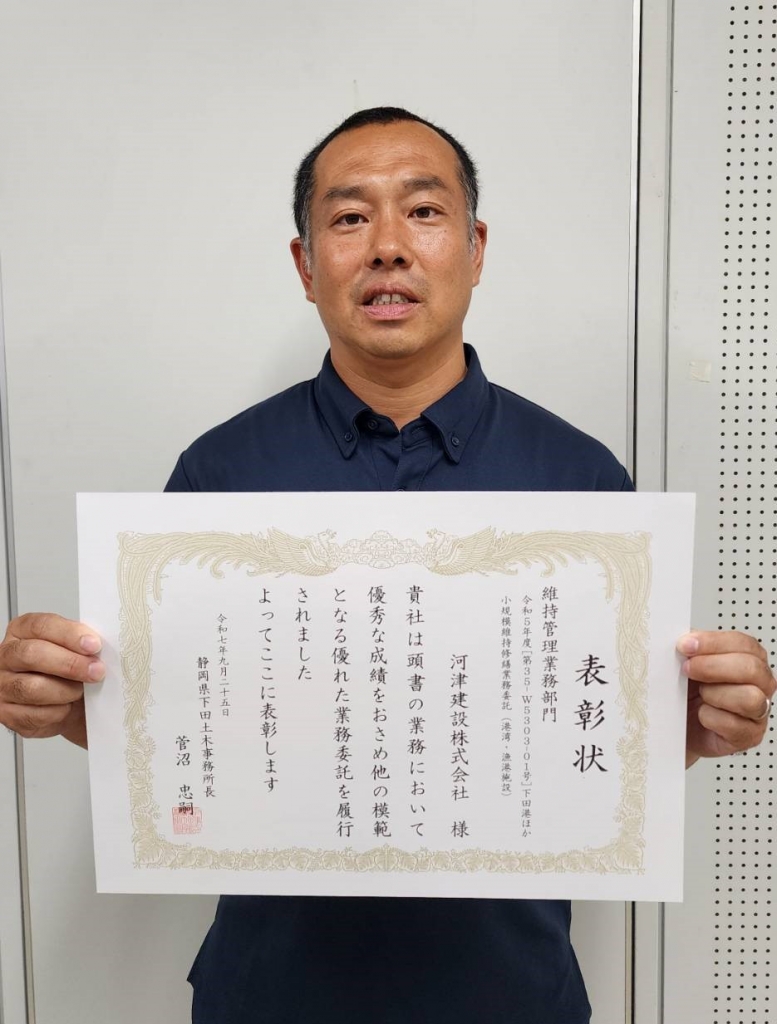 表彰状
維持管理業務部門
令和5年度[第35-W5303-01号]下田港ほか
小規模維持修繕業務委託（港湾・漁港施設）
河津建設株式会社 様
貴社は頭書の業務において
優秀な成績をおさめ他の模範
となる優れた業務委託を履行
されました
よってここに表彰します
令和七年九月二十五日
静岡県下田土木事務所長
菅沼 忠嗣